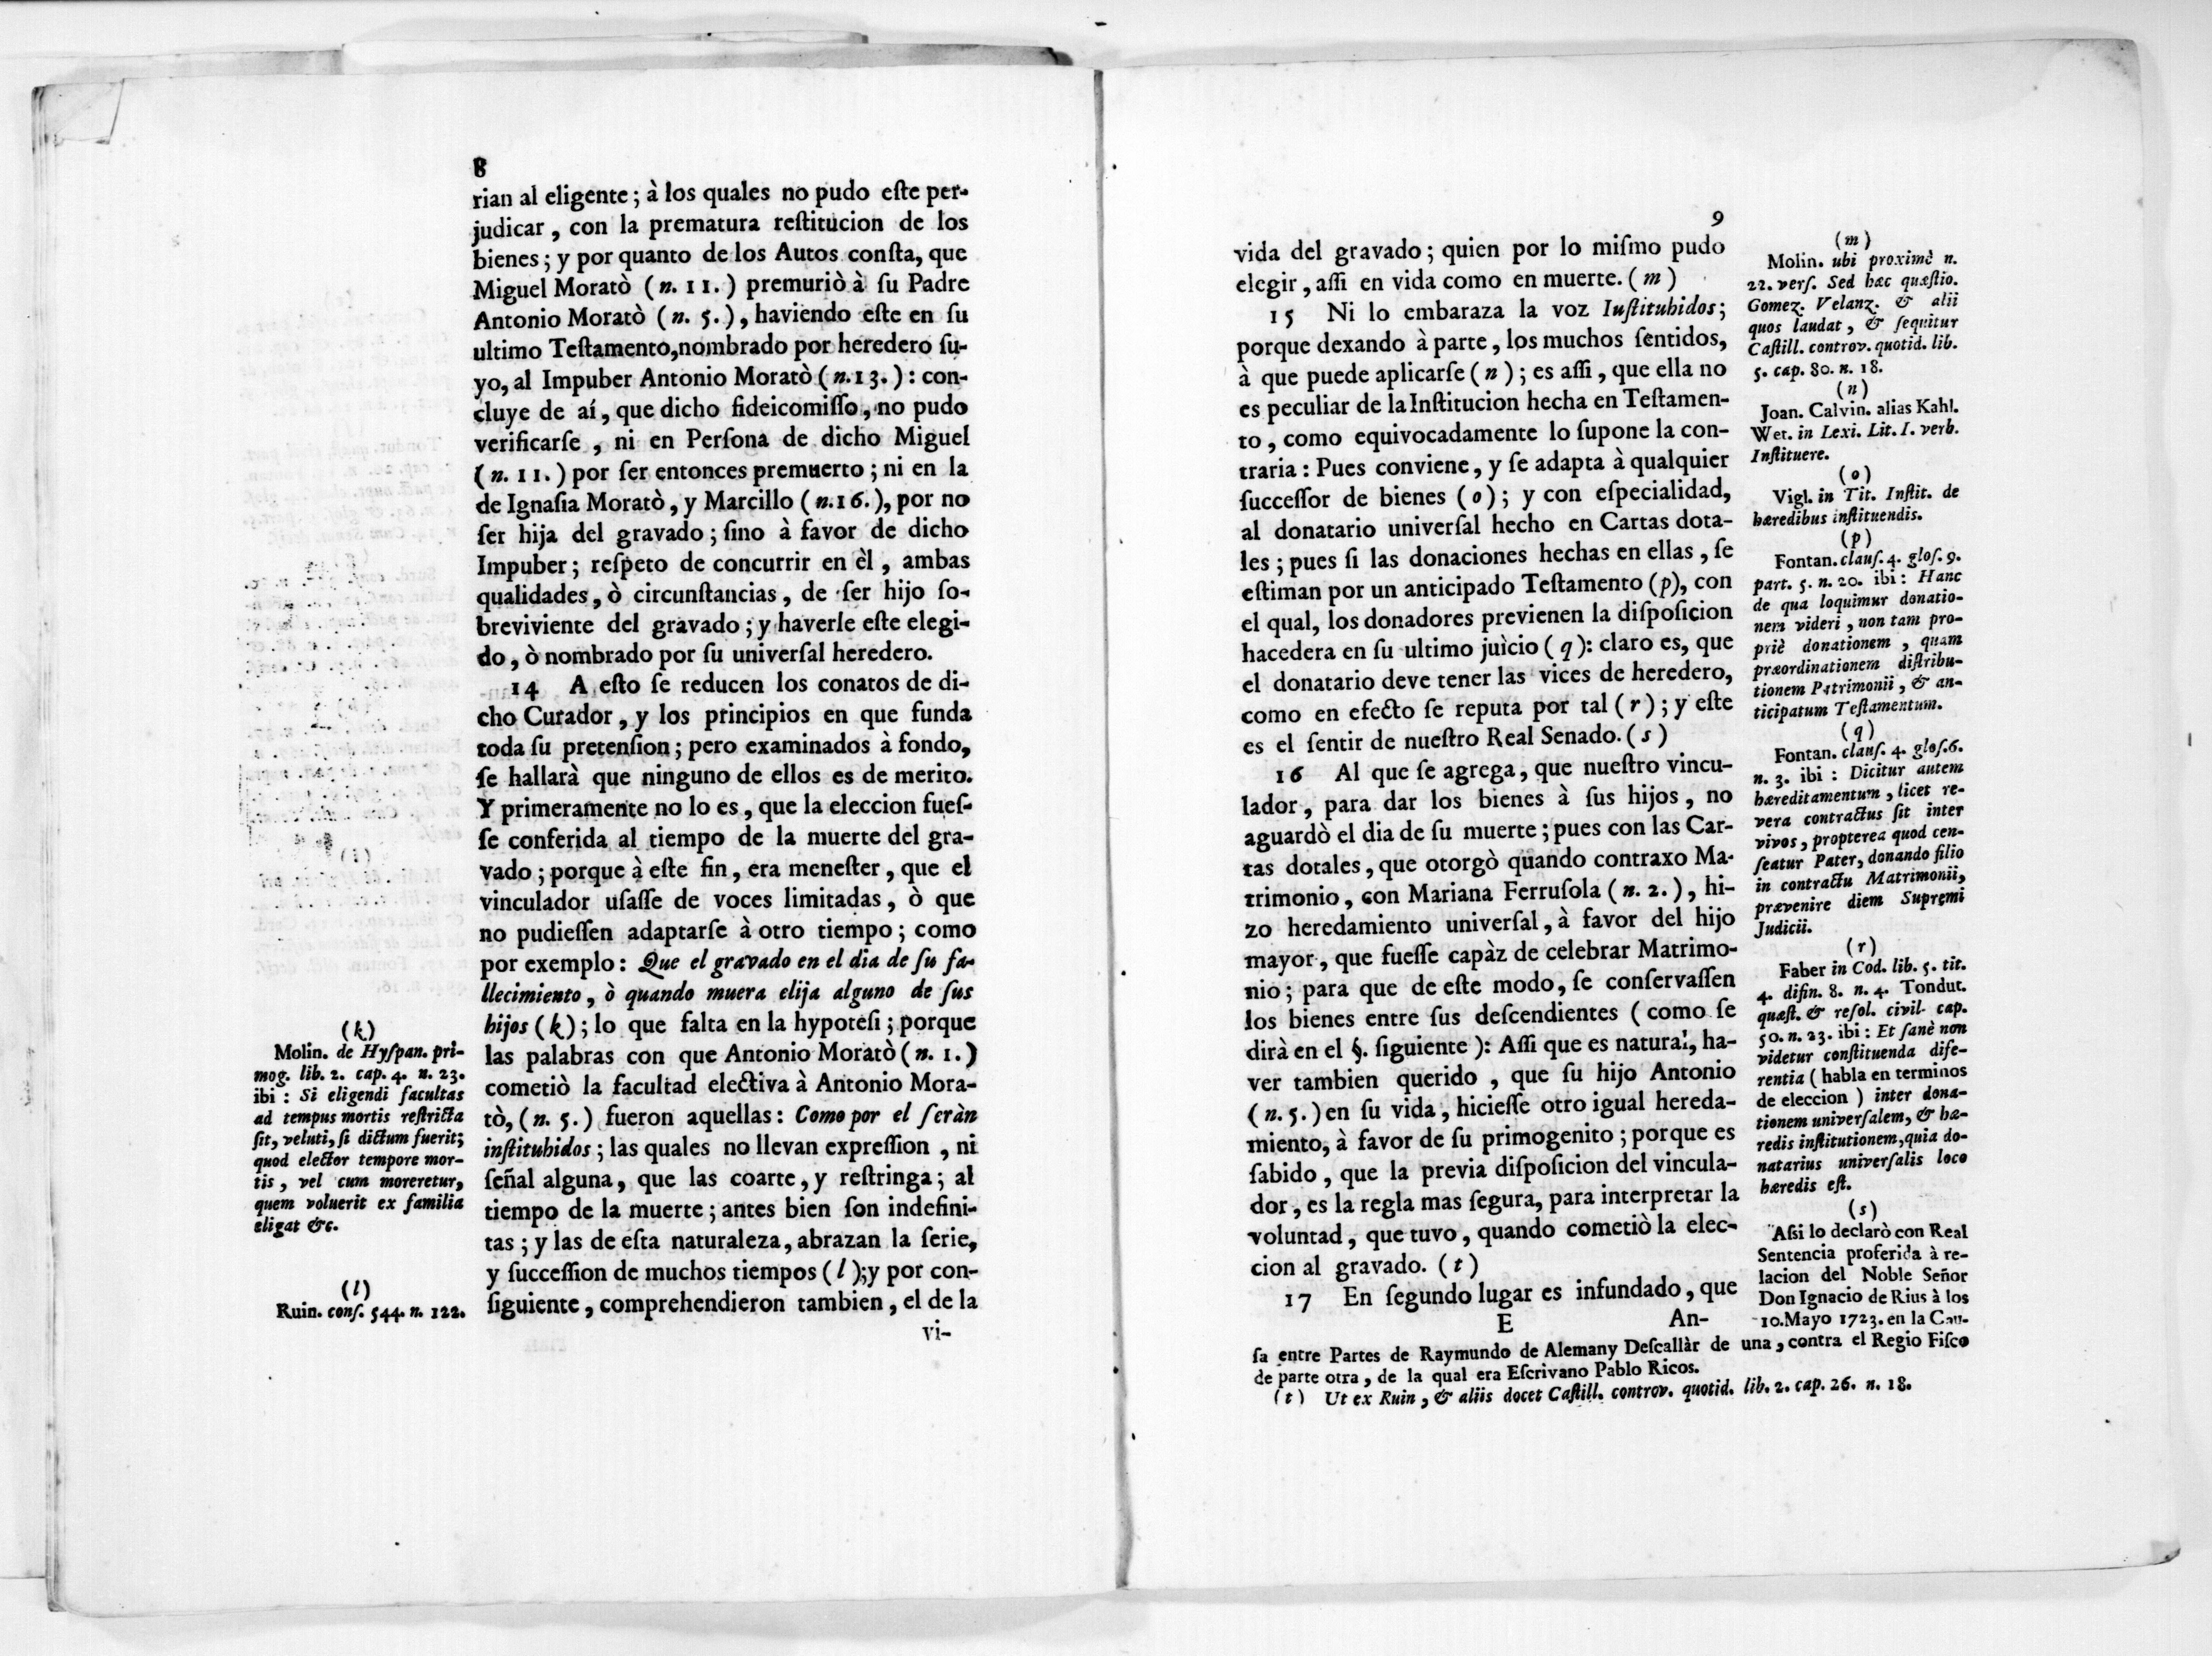 8
rian al eligente; à los quales no pudo eſte per-
judicar, con la prematura reſtitucion de los
bienes; y por quanto de los Autos conſta, que
Miguel Moratò (n. 11.) premuriò à ſu Padre
Antonio Moratò (n. 5.), haviendo eſte en ſu
ultimo Teſtamento, nombrado por heredero ſu-
yo, al Impuber Antonio Moratò (n. 13.): con-
cluye de aí, que dicho fideicomiſſo, no pudo
verificarſe, ni en Perſona de dicho Miguel
(n. 11.) por ſer entonces premuerto; ni en la
de Ignaſia Moratò, y Marcillo (n. 16.), por no
ſer hija del gravado; ſino à favor de dicho
Impuber; reſpeto de concurrir en èl, ambas
qualidades, ò circunſtancias, de ſer hijo ſo-
breviviente del gravado; y haverle eſte elegi-
do, ò nombrado por ſu univerſal heredero.
14 A eſto ſe reducen los conatos de di-
cho Curador, y los principios en que funda
toda ſu pretenſion; pero examinados à fondo,
ſe hallarà que ninguno de ellos es de merito.
Y primeramente no lo es, que la eleccion fueſ-
ſe conferida al tiempo de la muerte del gra-
vado; porque à eſte fin, era meneſter, que el
vinculador uſaſſe de voces limitadas, ò que
no pudieſſen adaptarſe à otro tiempo; como
por exemplo: Que el gravado en el dia de ſu fa-
llecimiento, ò quando muera elija alguno de ſus
hijos (k); lo que falta en la hypoteſi; porque
las palabras con que Antonio Moratò (n. 1.)
cometiò la facultad electiva à Antonio Mora-
tò, (n. 5.) fueron aquellas: Como por el ſeràn
inſtituhidos; las quales no llevan expreſſion, ni
ſeñal alguna, que las coarte, y reſtringa; al
tiempo de la muerte; antes bien ſon indefini-
tas; y las de eſta naturaleza, abrazan la ſerie,
y ſucceſſion de muchos tiempos (l); y por con-
ſiguiente, comprehendieron tambien, el de la
vi-
(k)
Molin. de Hyſpan. pri-
mog. lib. 2. cap. 4. n. 23.
ibi: Si eligendi facultas
ad tempus mortis reſtricta
ſit, veluti, ſi dictum fuerit;
quod elector tempore mor-
tis, vel cum moreretur,
quem voluerit ex familia
eligat &c.
(l)
Ruin. conſ. 544. n. 122.
9
vida del gravado; quien por lo miſmo pudo
elegir, aſſi en vida como en muerte. (m)
15 Ni lo embaraza la voz Inſtituhidos;
porque dexando à parte, los muchos ſentidos,
à que puede aplicarſe (n); es aſſi, que ella no
es peculiar de la Inſtitucion hecha en Teſtamen-
to, como equivocadamente lo ſupone la con-
traria: Pues conviene, y ſe adapta à qualquier
ſucceſſor de bienes (o); y con eſpecialidad,
al donatario univerſal hecho en Cartas dota-
les; pues ſi las donaciones hechas en ellas, ſe
eſtiman por un anticipado Teſtamento (p), con
el qual, los donadores previenen la diſpoſicion
hacedera en ſu ultimo juìcio (q): claro es, que
el donatario deve tener las vices de heredero,
como en efecto ſe reputa por tal (r); y eſte
es el ſentir de nueſtro Real Senado. (s)
16 Al que ſe agrega, que nueſtro vincu-
lador, para dar los bienes à ſus hijos, no
aguardò el dia de ſu muerte; pues con las Car-
tas dotales, que otorgò quando contraxo Ma-
trimonio, con Mariana Ferruſola (n. 2.), hi-
zo heredamiento univerſal, à favor del hijo
mayor, que fueſſe capàz de celebrar Matrimo-
nio; para que de eſte modo, ſe conſervaſſen
los bienes entre ſus deſcendientes (como ſe
dirà en el §. ſiguiente): Aſſi que es natural, ha-
ver tambien querido, que ſu hijo Antonio
(n. 5.) en ſu vida, hicieſſe otro igual hereda-
miento, à favor de ſu primogenito; porque es
ſabido, que la previa diſpoſicion del vincula-
dor, es la regla mas ſegura, para interpretar la
voluntad, que tuvo, quando cometiò la elec-
cion al gravado. (t)
17 En ſegundo lugar es infundado, que
E An-
(m)
Molin. ubi proximè n.
22. verſ. Sed hæc quæſtio.
Gomez. Velanz. & alii
quos laudat, & ſequitur
Caſtill. controv. quotid. lib.
5. cap. 80. n. 18.
(n)
Joan. Calvin. alias Kahl.
Wet. in Lexi. Lit. I. verb.
Inſtituere.
(o)
Vigl. in Tit. Inſtit. de
hæredibus inſtituendis.
(p)
Fontan. clauſ. 4. gloſ. 9.
part. 5. n. 20. ibi: Hanc
de qua loquimur donatio-
nem videri, non tam pro-
priè donationem, quam
præordinationem diſtribu-
tionem Patrimonii, & an-
ticipatum Teſtamentum.
(q)
Fontan. clauſ. 4. gloſ. 6.
n. 3. ibi: Dicitur autem
hæreditamentum, licet re-
vera contractus ſit inter
vivos, propterea quod cen-
ſeatur Pater, donando filio
in contractu Matrimonii,
prævenire diem Supremi
Judicii.
(r)
Faber in Cod. lib. 5. tit.
4. difin. 8. n. 4. Tondut.
quæſt. & reſol. civil. cap.
50. n. 23. ibi: Et ſanè non
videtur conſtituenda dife-
rentia (habla en terminos
de eleccion) inter dona-
tionem univerſalem, & hæ-
redis inſtitutionem, quia do-
natarius univerſalis loco
hæredis eſt.
(s)
Aſsi lo declarò con Real
Sentencia proferida à re-
lacion del Noble Señor
Don Ignacio de Rius à los
10. Mayo 1723. en la Cau-
ſa entre Partes de Raymundo de Alemany Deſcallàr de una, contra el Regio Fiſco
de parte otra, de la qual era Eſcrivano Pablo Ricos.
(t) Ut ex Ruin, & aliis docet Caſtill. controv. quotid. lib. 2. cap. 26. n. 18.